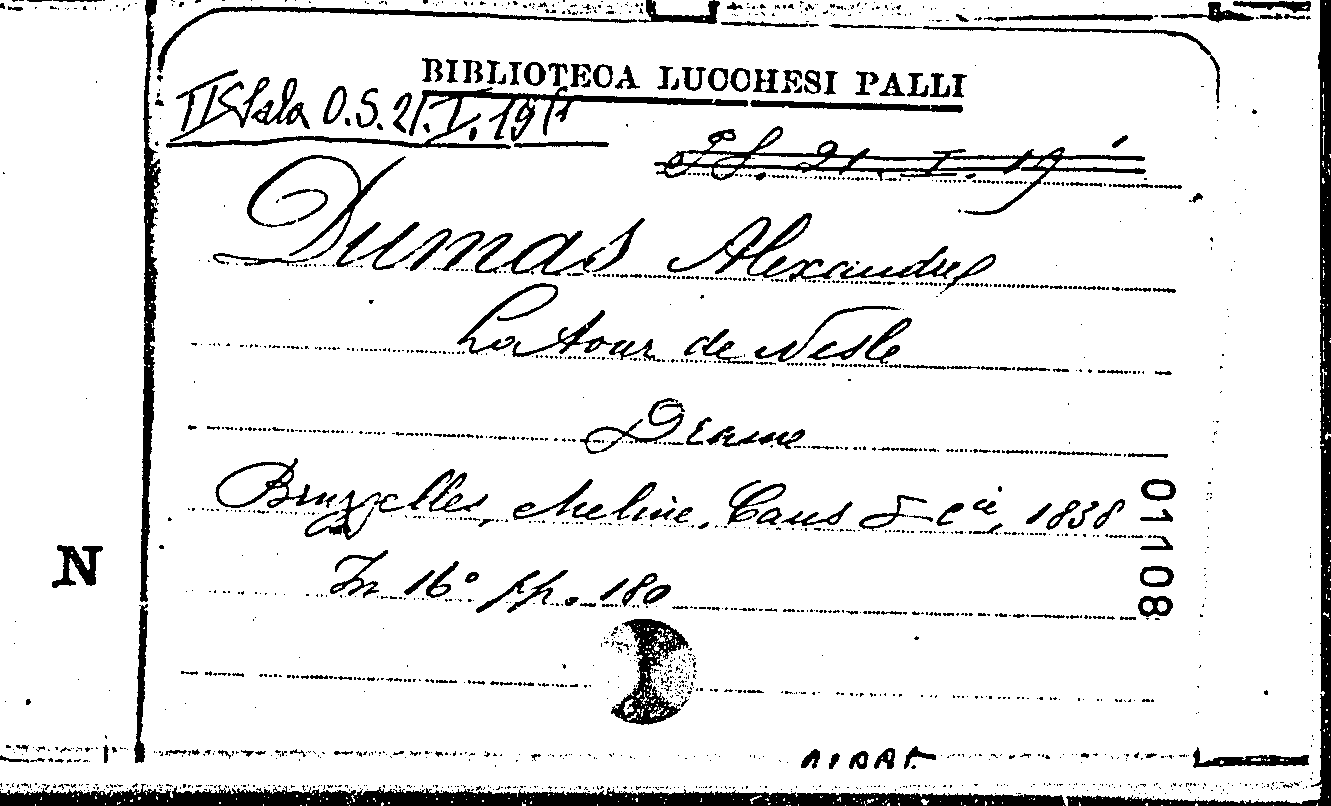 BIBLIOTECA LUCCHESI PALLI
II Sala O.S. 21.I.19
21. I. 19
Dumas Alexandre
La tour de Nesle
Drame
Bruxelles, Meline, Cans & Cie, 1838
In 16° pp. 180
01108
N